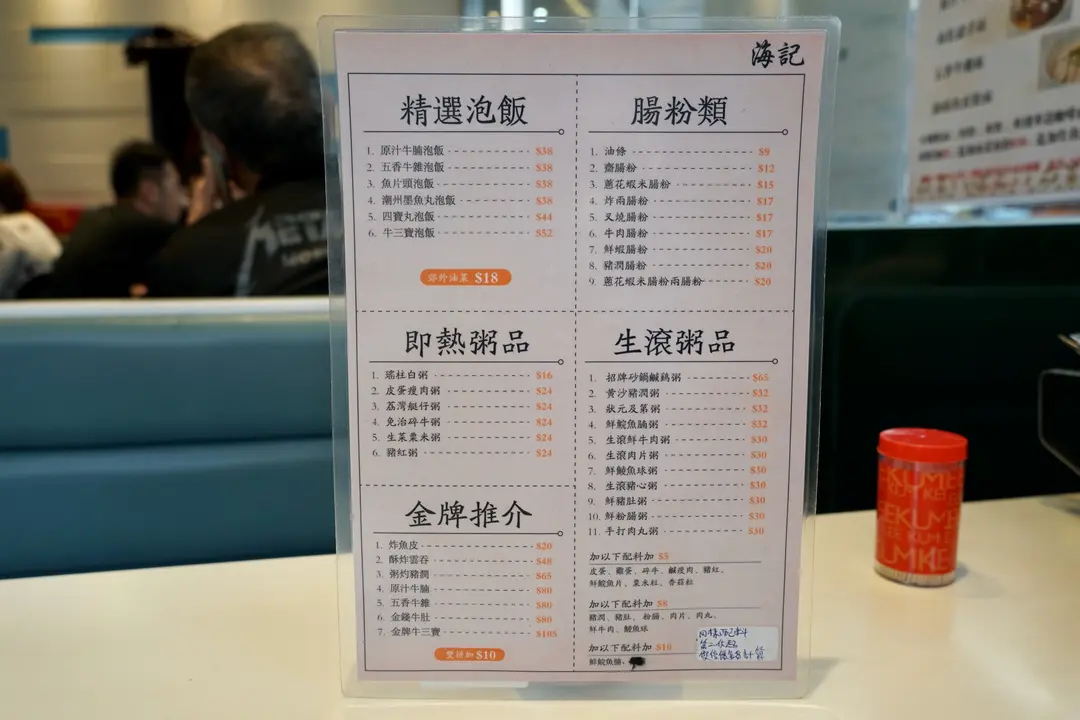 海記
精選泡飯
1. 原汁牛腩泡飯 $38
2. 五香牛雜泡飯 $38
3. 魚片頭泡飯 $38
4. 潮州墨魚丸泡飯 $38
5. 四寶丸泡飯 $44
6. 牛三寶泡飯 $52
弥外油菜 $18
腸粉類
1. 油條 $9
2. 齋腸粉 $12
3. 蔥花蝦米腸粉 $15
4. 炸兩腸粉 $17
5. 叉燒腸粉 $17
6. 牛肉腸粉 $17
7. 鮮蝦腸粉 $20
8. 豬潤腸粉 $20
9. 蔥花蝦米腸粉兩腸粉 $20
即熱粥品
1. 瑤柱白粥 $16
2. 皮蛋瘦肉粥 $24
3. 荔灣艇仔粥 $24
4. 免治碎牛粥 $24
5. 生菜粟米粥 $24
6. 豬紅粥 $24
生滾粥品
1. 招牌砂鍋鹹鷄粥 $65
2. 黄沙豬潤粥 $32
3. 狀元及第粥 $32
4. 鮮鯇魚腩粥 $32
5. 生滾鮮牛肉粥 $30
6. 生滾肉片粥 $30
7. 鮮鯪魚球粥 $30
8. 生滾豬心粥 $30
9. 鮮豬肚粥 $30
10. 鮮粉腸粥 $30
11. 手打肉丸粥 $30
金牌推介
1. 炸魚皮 $20
2. 酥炸雲吞 $48
3. 粥灼豬潤 $65
4. 原汁牛腩 $80
5. 五香牛雜 $80
6. 金錢牛肚 $80
7. 金牌牛三寶 $105
雙拼加 $10
加以下配料加 $5
皮蛋、雞蛋、碎牛、鹹瘦肉、豬紅、
鮮鯇魚片、粟米粒、香菇粒
加以下配料加 $8
豬潤、豬肚、粉腸、肉片、肉丸、
鮮牛肉、鯪魚球
加以下配料加 $10
鮮鯇魚腩、